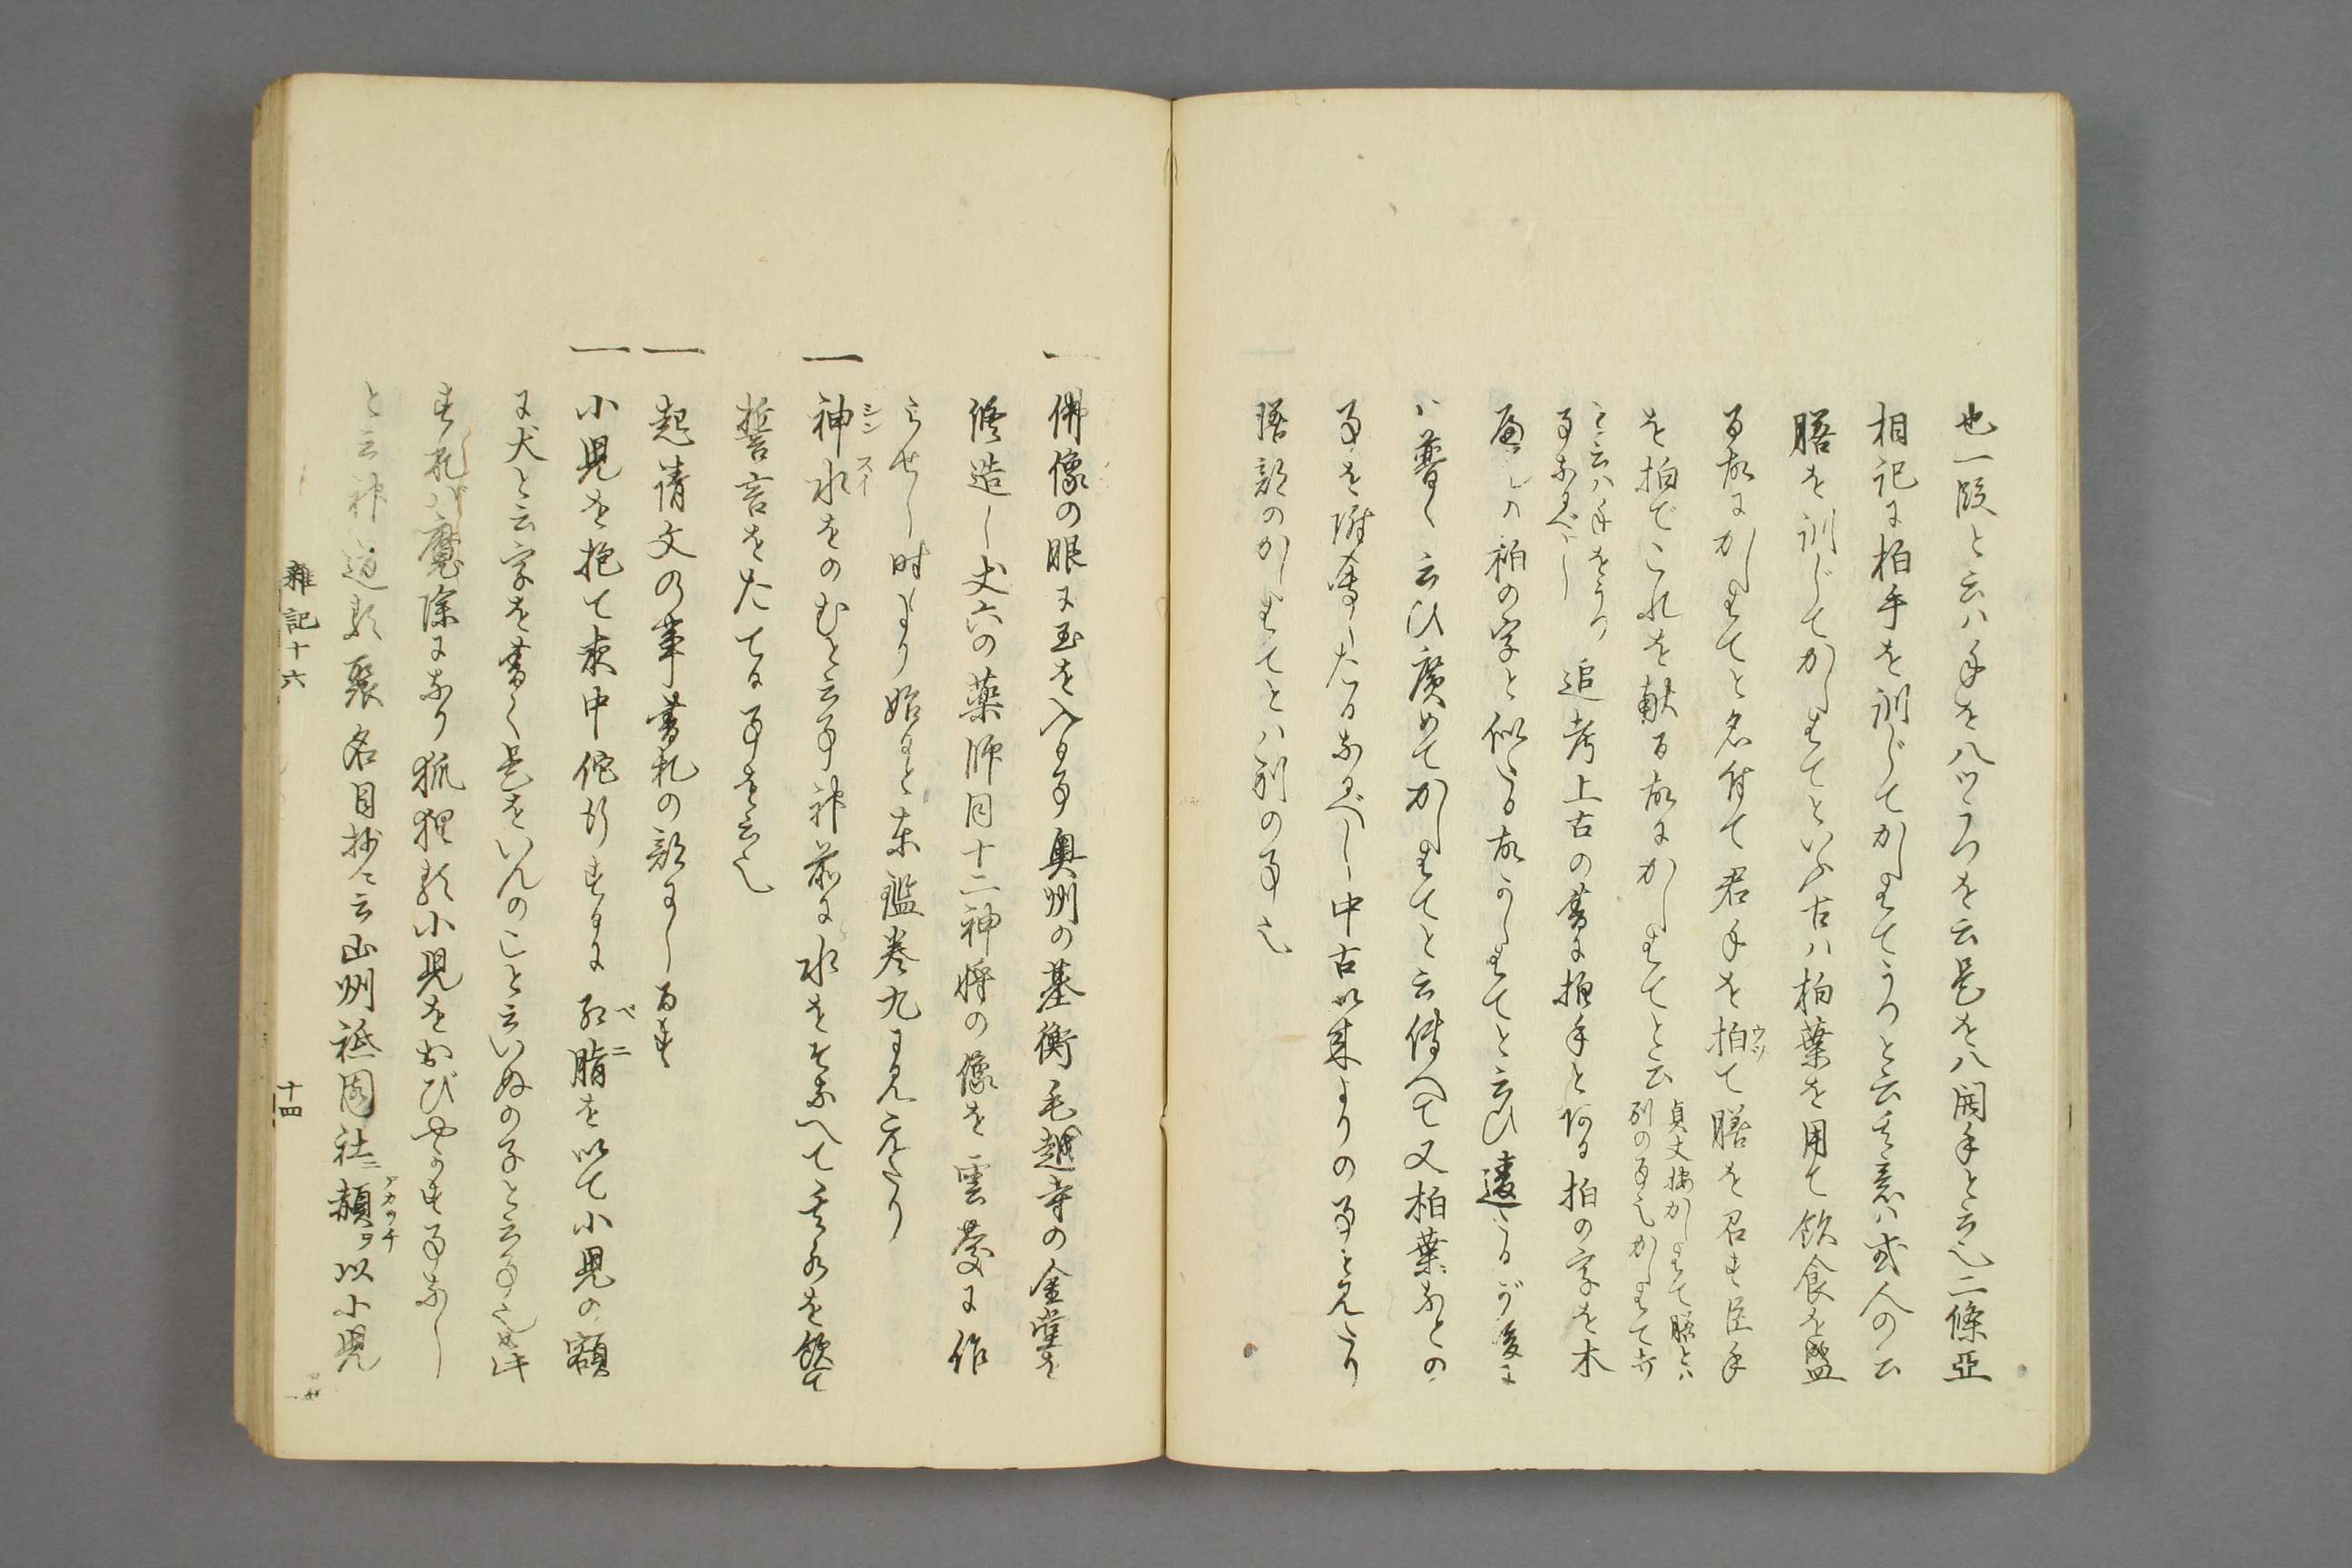 也一段と云ハ手を八ツうつを云是を八開手と云也二條亞
相記に柏手を訓じてかしはてうつと云其意ハ或人の云
膳を訓じてかしはてといふ古ハ柏葉を用て飲食を盛
る故にかしはてと名付て君手を拍て膳を召す臣手
ウツ
を拍でこれを献る故にかしはてと云
貞丈按かしはて膳とハ
別の事也かしはて
と云ハ手をうつ
事なるべし
追考上古の書に拍手とある拍の字を木
柏の字と似たる故かしはてと云ひ違たるが後に
ハ普く云ひ廣めてかしはてと云傳へて又柏葉などの
事を附會したるなるべし中古以来よりの事と見えたり
膳部のかしはてとハ別の事也
一 佛像の眼に玉を入る事奥州の基衡毛越寺の金堂を
修造し丈六の藥師同十二神将の像を雲慶に作
らせし時より始ると東鑑巻九に見えたり
一 神水をのむと云事神前に水をそなへて其水を飲て
シンスイ
誓言をたてる事を云也
一 起請文の事書札の部にしるす
一 小児を抱て夜中他行するに紅脂を以て小児の額
ベニ
に犬と云字を書く是をいんのこと云いぬの子と云事也
すれバ魔除になり狐狸類小児をおびやかす事なし
と云神道類聚名目抄ニ云山州祇園社ニ赭ヲ以小児
アカツチ
雜記十六
十四